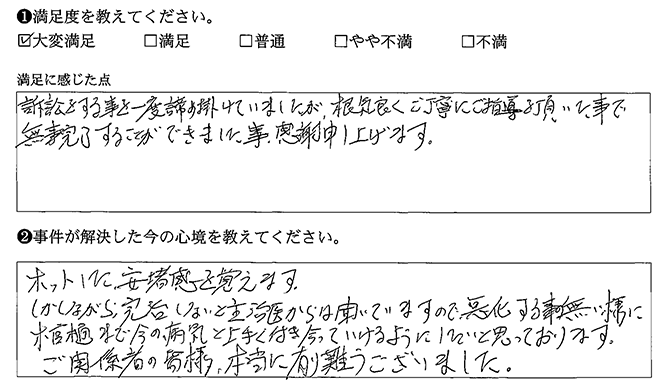 ❶満足度を教えてください。
☑大変満足 □満足 □普通 □やや不満 □不満
満足に感じた点
訴訟をする事を一度諦め掛けていましたが、根気良くご丁寧にご指導を頂いた事で
無事完了することができました事、感謝申し上げます。
❷事件が解決した今の心境を教えてください。
ホットした、安堵感を覚えます。
しかしながら、完治しないと主治医からは聞いていますので、悪化する事無い様に
今の病気と上手く付き合っていけるようにしたいと思っております。
ご関係者の皆様、本当に有難うございました。